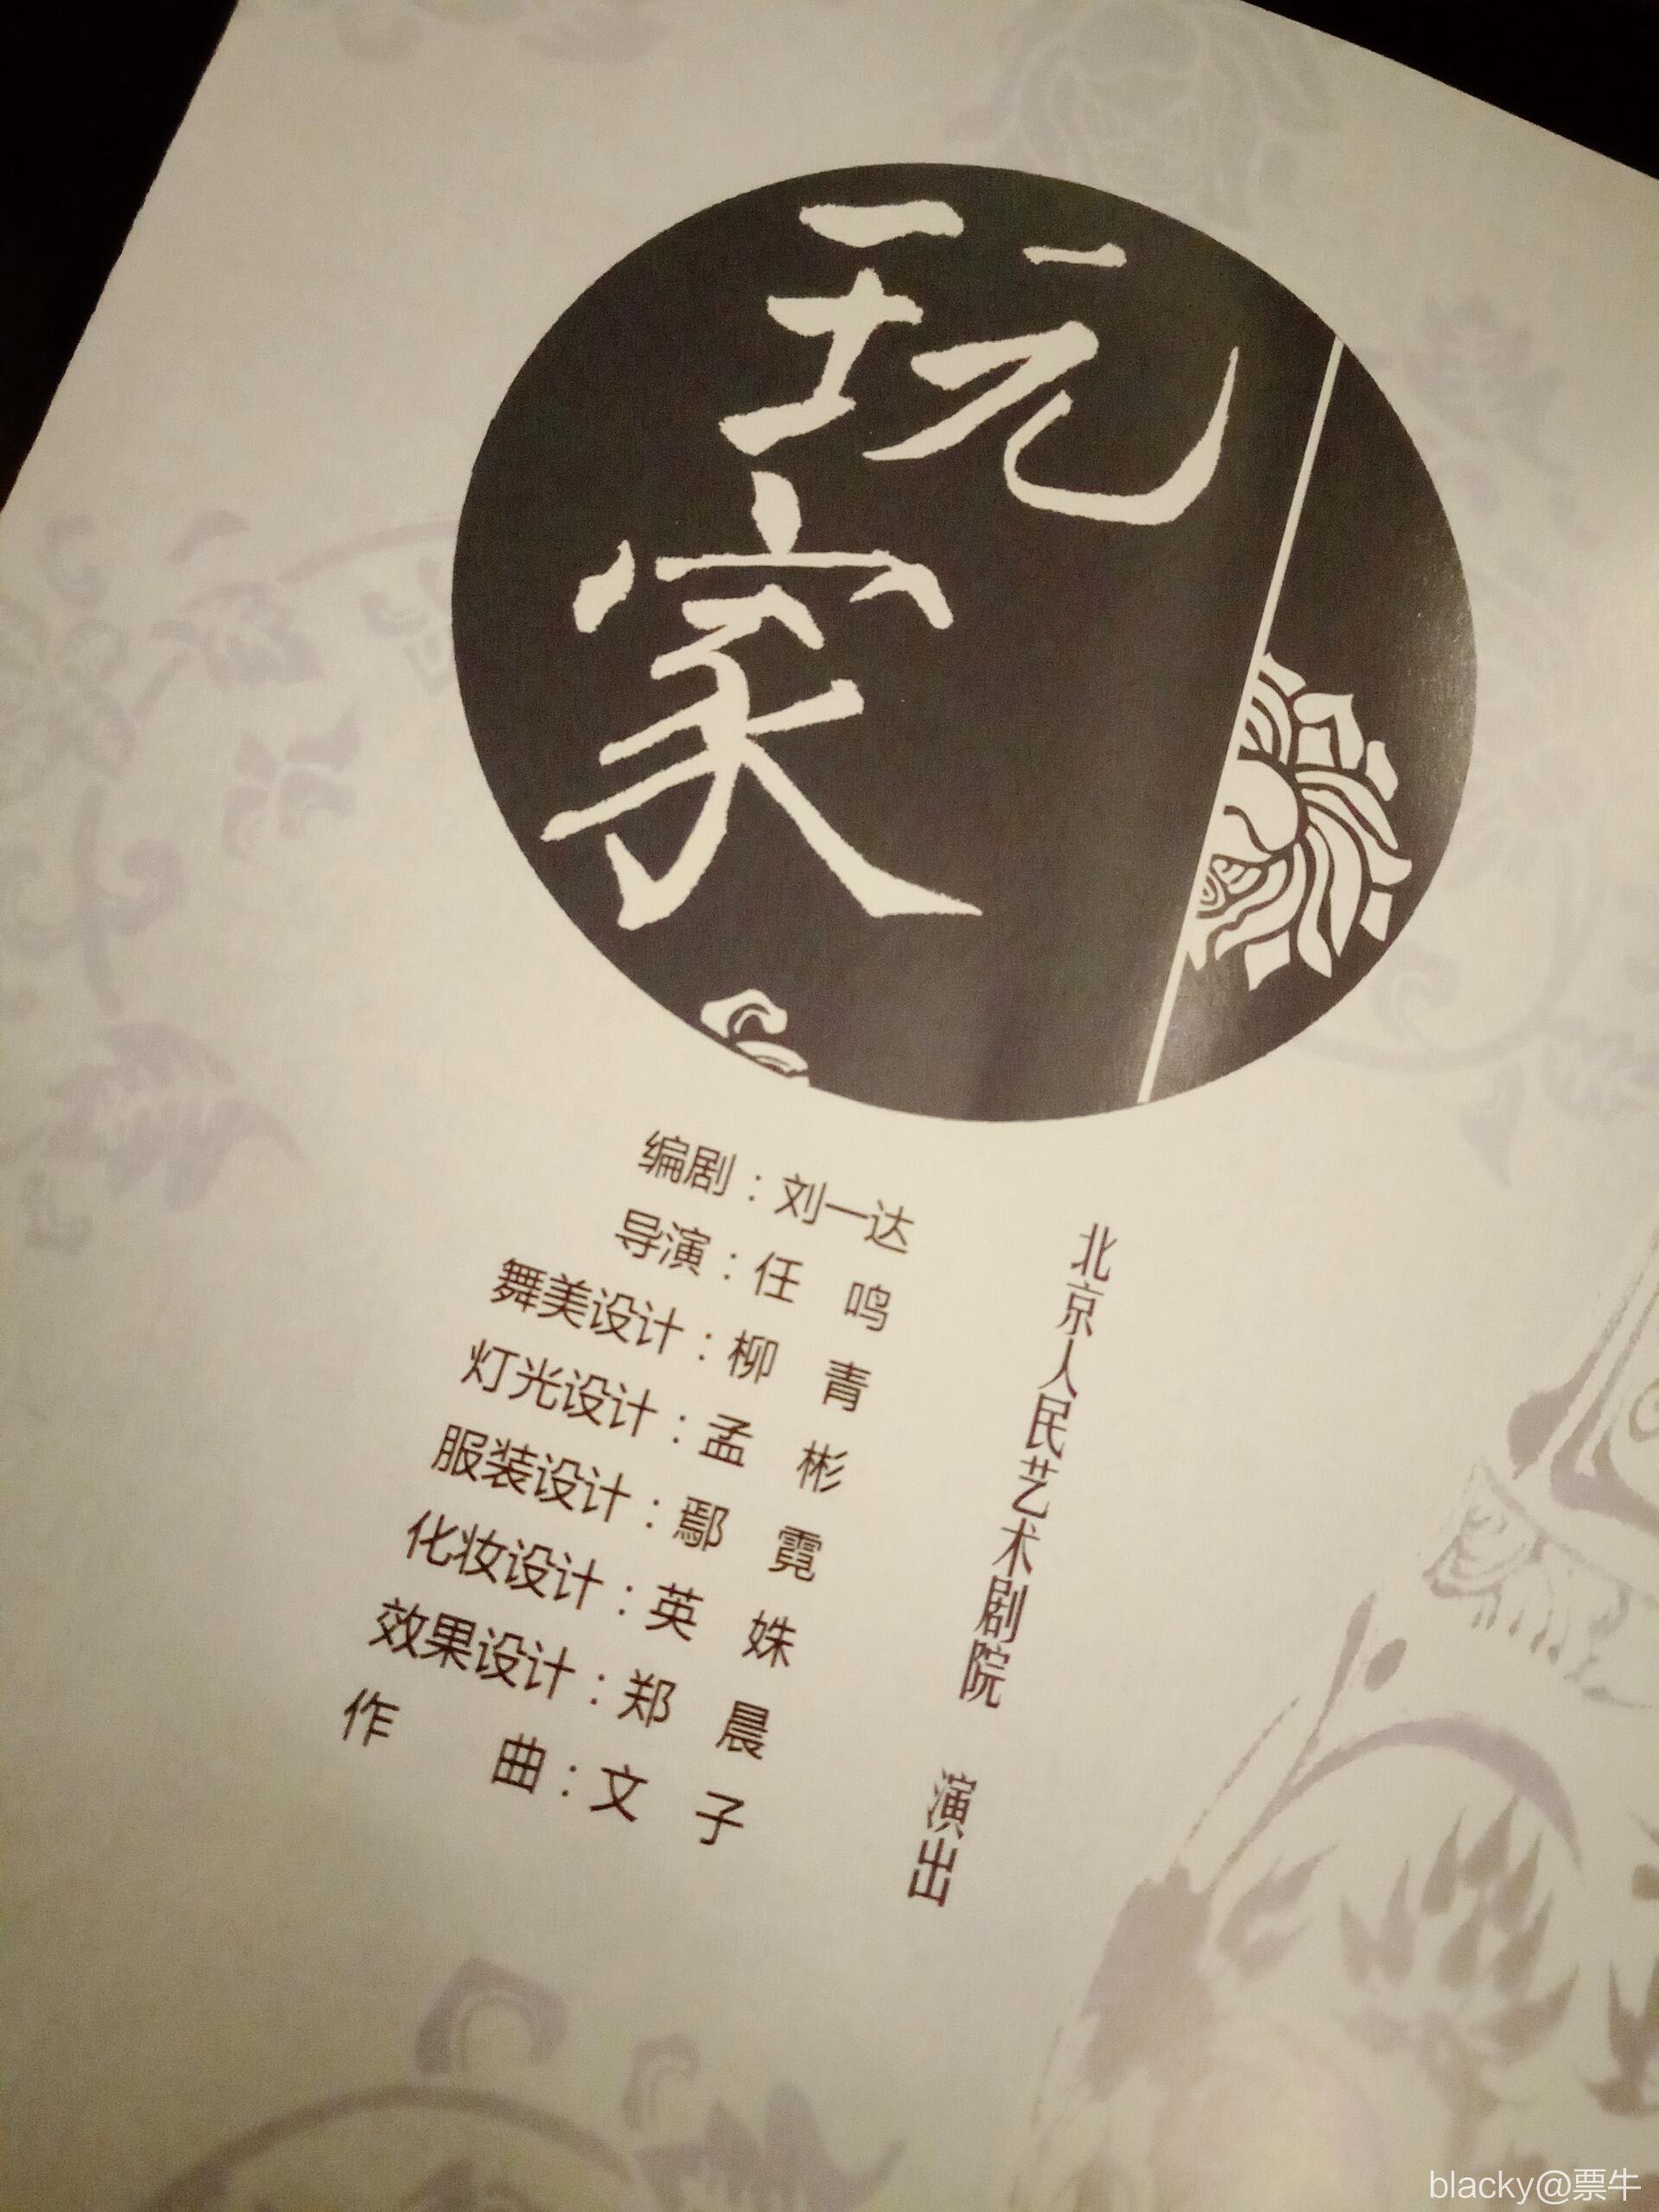 玩
家
编剧：刘一达
导演：任 鸣
舞美设计：柳 青
灯光设计：孟 彬
服装设计：鄢 霓
化妆设计：英 姝
效果设计：郑 晨
作 曲：文 子
北京人民艺术剧院 演出
blacky@票牛